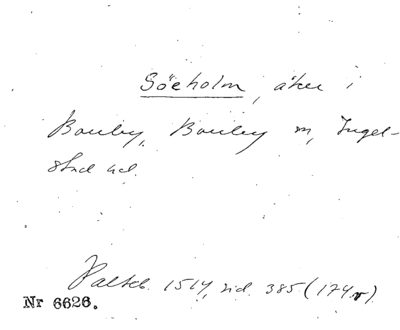 Söeholm, åker i
Bouby, Bouby m, Ingel-
stad hd.
Paltsb. 1514, sid. 385 (174v).
Nr 6626.